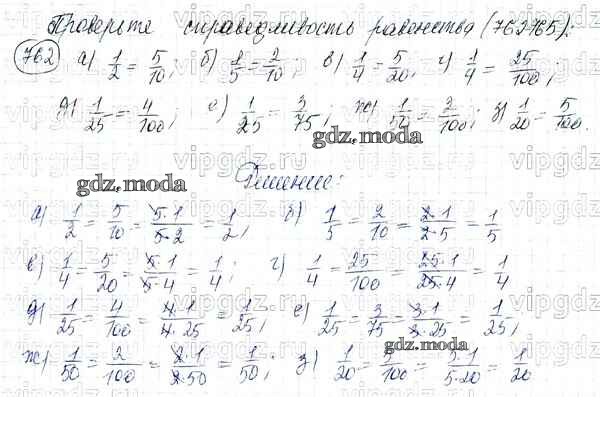 Проверьте справедливость равенства (762-765):
762 а) 1/2 = 5/10; б) 1/5 = 2/10; в) 1/4 = 5/20; г) 1/4 = 25/100;
д) 1/25 = 4/100; е) 1/25 = 3/75; ж) 1/50 = 2/100; з) 1/20 = 5/100.
gdz.moda
Решение:
gdz.moda
а) 1/2 = 5/10 = 5·1/5·2 = 1/2; б) 1/5 = 2/10 = 2·1/2·5 = 1/5
в) 1/4 = 5/20 = 5·1/5·4 = 1/4; г) 1/4 = 25/100 = 25·1/25·4 = 1/4
д) 1/25 = 4/100 = 4·1/4·25 = 1/25; е) 1/25 = 3/75 = 3·1/3·25 = 1/25;
gdz.moda
ж) 1/50 = 2/100 = 2·1/2·50 = 1/50; з) 1/20 = 5/100 = 5·1/5·20 = 1/20
vipgdz.ru